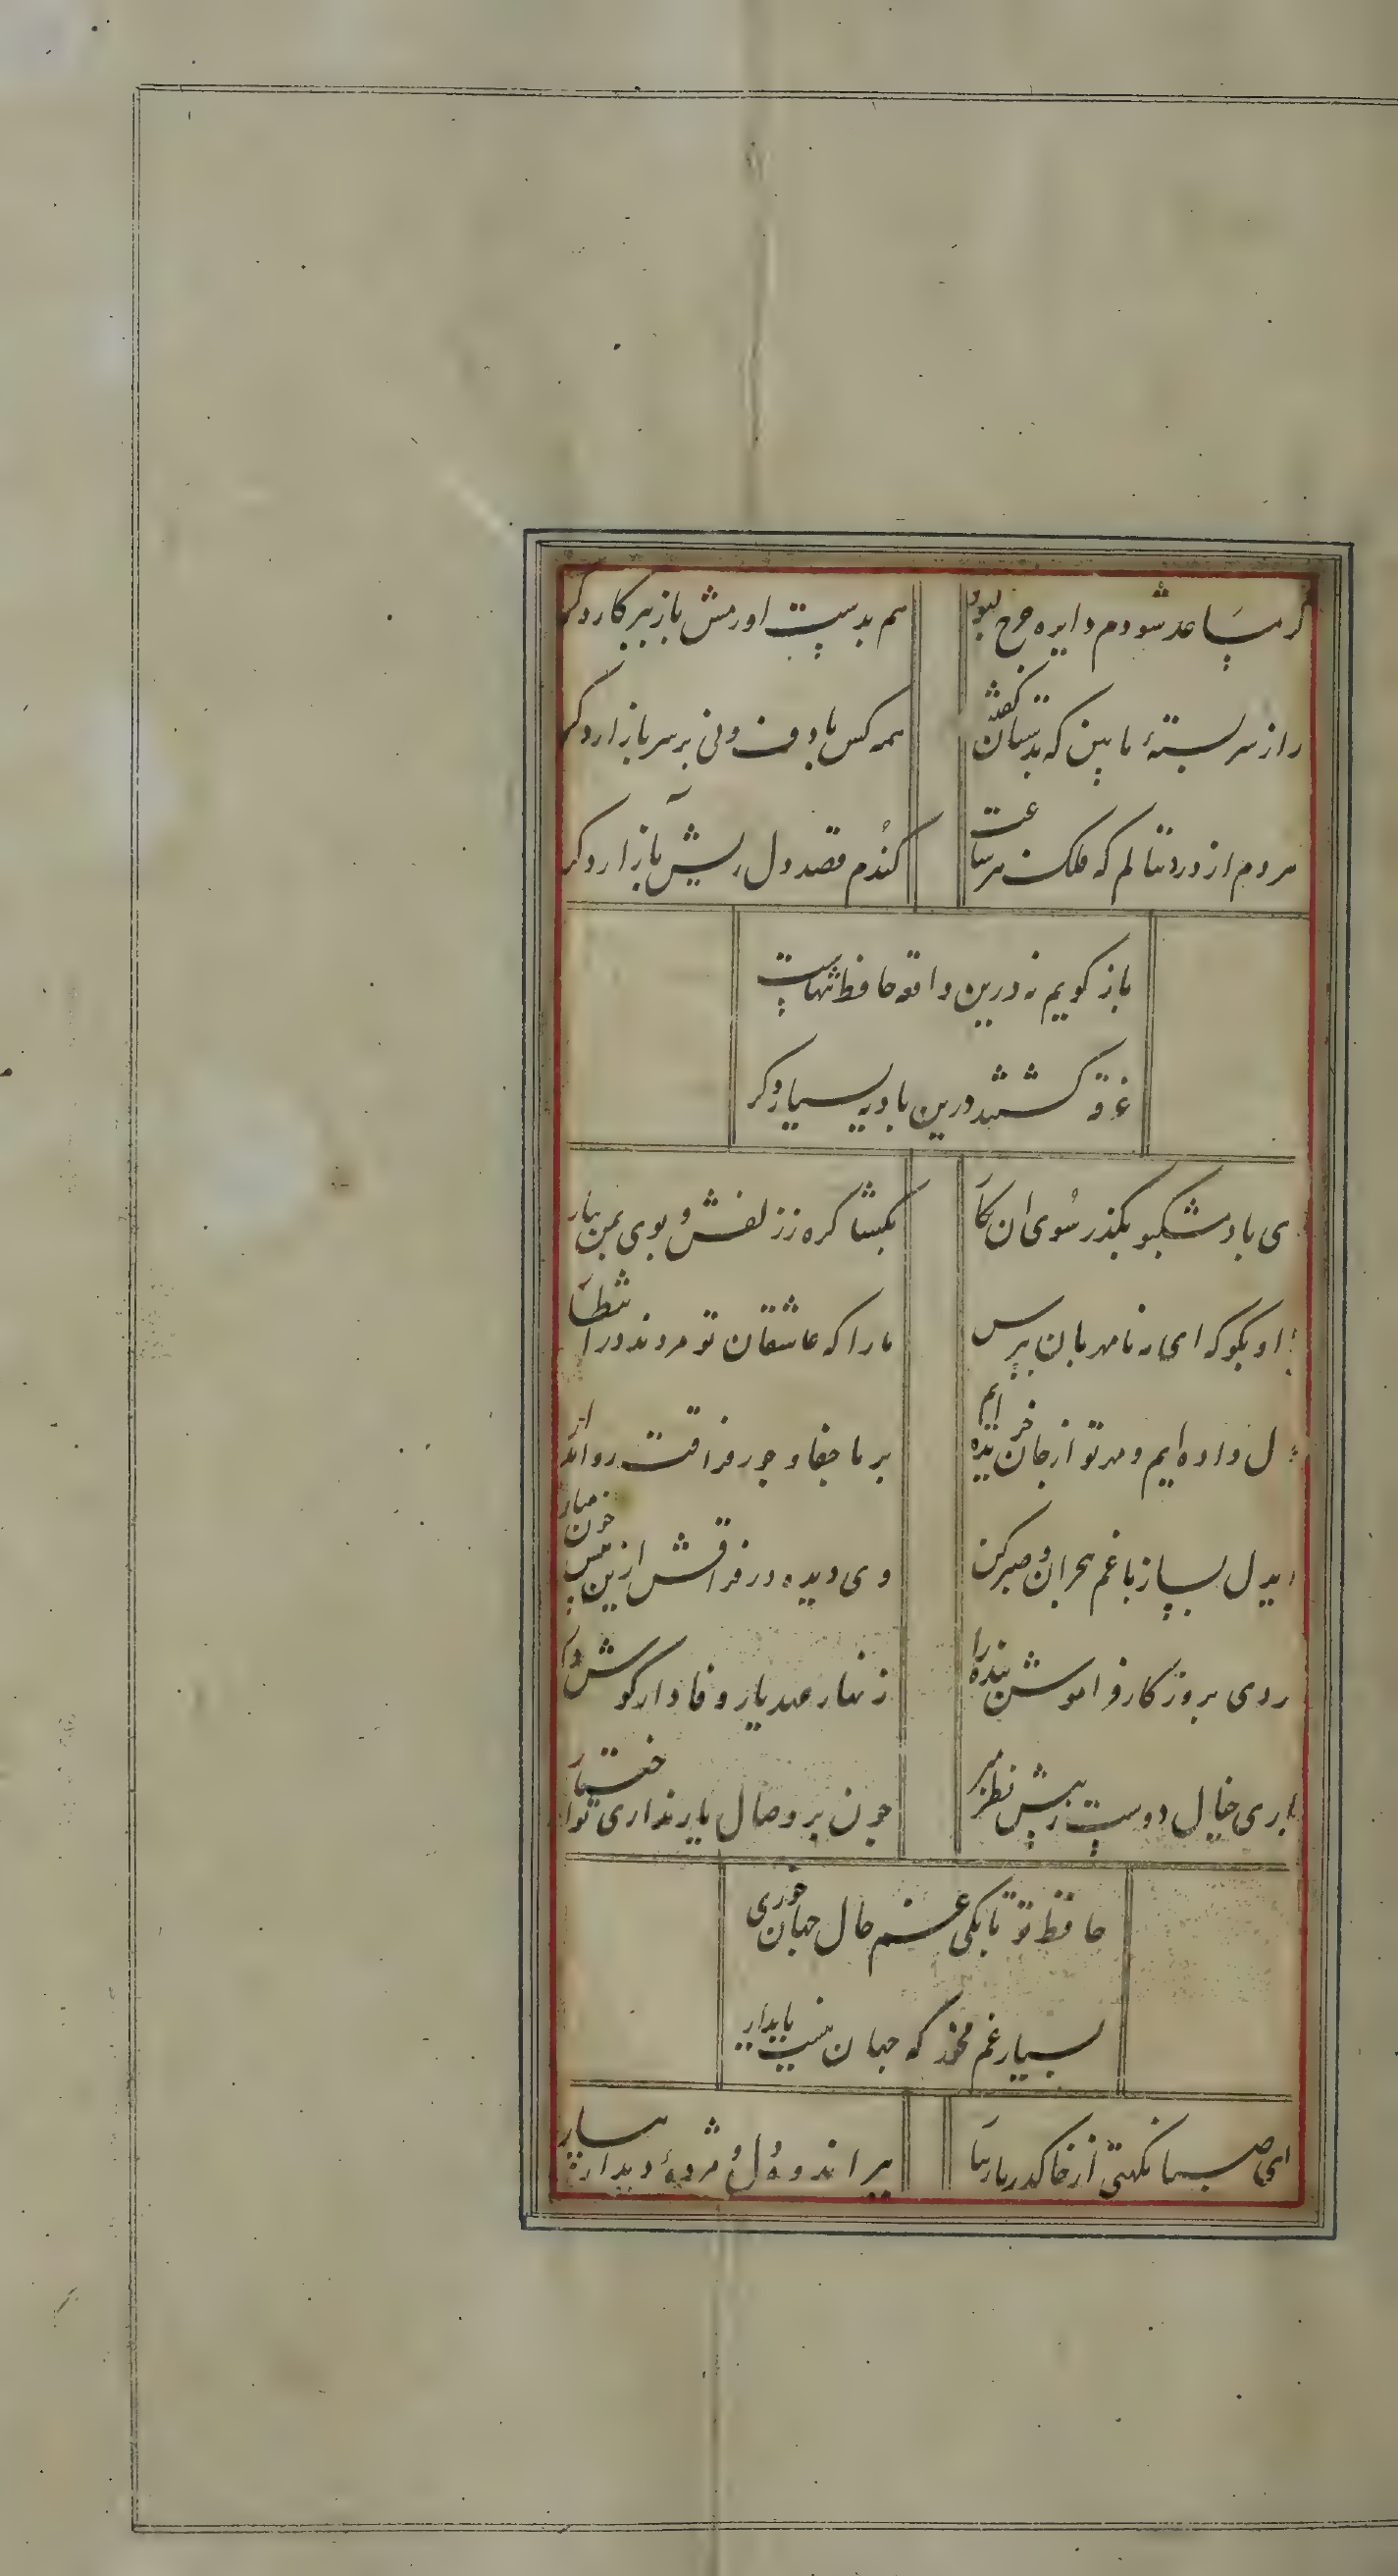 گر مساعد شودم دایره چرخ کبود
هم بدست اورمش باز بپرکار دگر
راز سربستهٔ ما بین که بدستان گفتند
همه کس با دف و نی بر سر بازار دگر
هر دم از درد بنالم که فلک هر ساعت
کندم قصد دل ریش بآزار دگر
باز گویم نه درین واقعه حافظ تنهاست
غرقه گشتند درین بادیه بسیار دگر
ای باد مشکبو بگذر سوی ان نگار
بگشا گره ز زلفش و بوی بمن بیار
با او بگو که ای مه نامهربان بپرس
ما را که عاشقان تو مردند در انتظار
دل داده ایم و مهر تو از جان خریده ایم
بر ما جفا و جور فراقت روا مدار
ایدل بساز با غم هجران و صبر کن
وی دیده در فراقش ازین بیش خون مبار
کردی بروزکار فراموش بنده را
زنهار عهد یار وفادار گوش دار
باری خیال دوست ز پیش نظر مبر
چون بر وصال یار نداری تو اختیار
حافظ تو تا بکی غم حال جهان خوری
بسیار غم مخور که جهان نیست پایدار
ای صبا نکهتی از خاک در یار بیار
ببر اندوه دل و مژدهٔ دیدار بیار